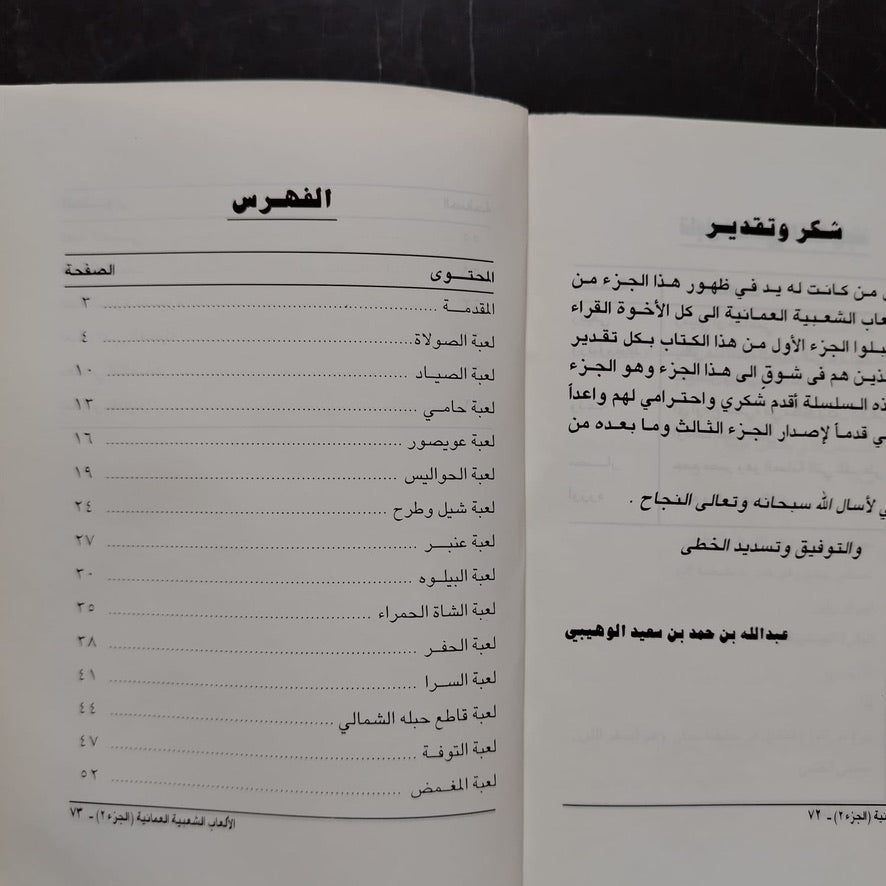 شكر وتقدير
من كانت له يد في ظهور هذا الجزء من
الشعبية العمانية الى كل الأخوة القراء
الجزء الأول من هذا الكتاب بكل تقدير
هم فى شوق الى هذا الجزء وهو الجزء
السلسلة أقدم شكري واحترامي لهم واعداً
قدماً لإصدار الجزء الثالث وما بعده من
لأسال الله سبحانه وتعالى النجاح .
والتوفيق وتسديد الخطى
عبدالله بن حمد بن سعيد الوهيبي
(الجزء ٢) ـ ٧٢
الفهرس
المحتوى الصفحة
المقدمة ٣
لعبة الصولاة ٤
لعبة الصياد ١٠
لعبة حامي ١٣
لعبة عويصور ١٦
لعبة الحواليس ١٩
لعبة شيل وطرح ٢٤
لعبة عنبر ٢٧
لعبة البيلوه ٣٠
لعبة الشاة الحمراء ٣٥
لعبة الحفر ٣٨
لعبة السرا ٤١
لعبة قاطع حبله الشمالي ٤٤
لعبة التوفة ٤٧
لعبة المغمض ٥٢
الألعاب الشعبية العمانية (الجزء ٢) ـ ٧٣